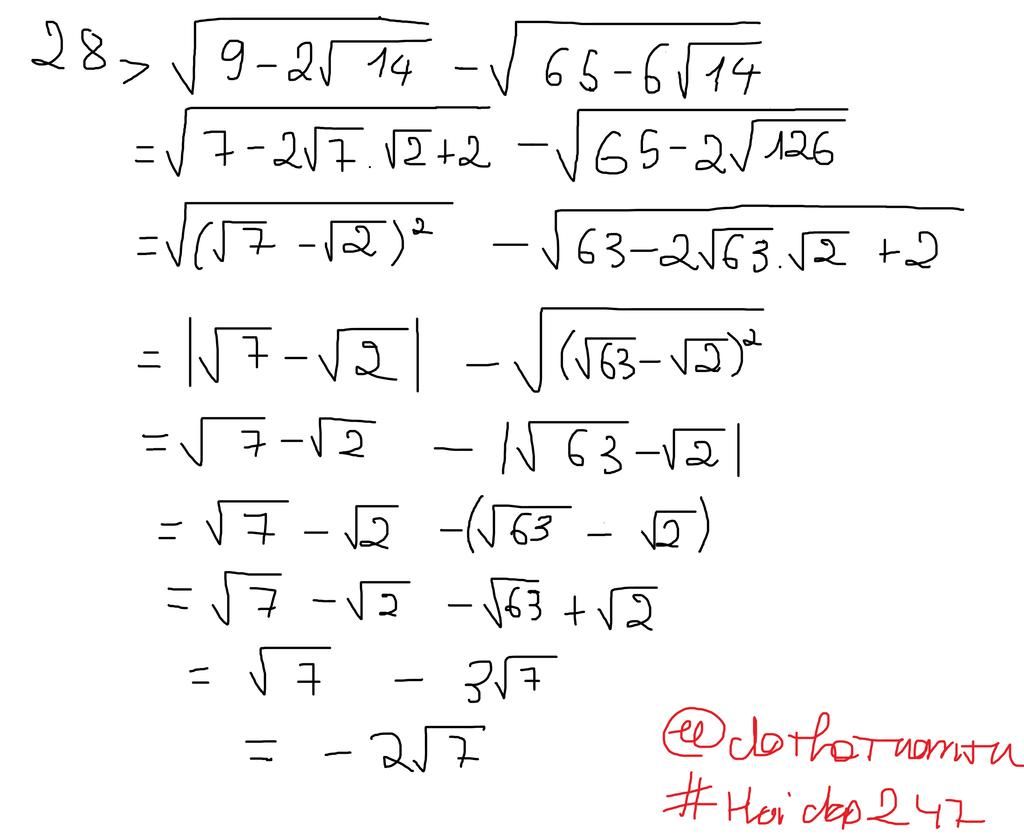 28> √(9-2√14) - √(65-6√14)
= √(7-2√7.√2+2) - √(65-2√126)
= √((√7-√2)²) - √(63-2√63.√2+2)
= |√7-√2| - √((√63-√2)²)
= √7-√2 - |√63-√2|
= √7-√2 -(√63-√2)
= √7-√2-√63+√2
= √7 - 3√7
= -2√7
#Hoidap247